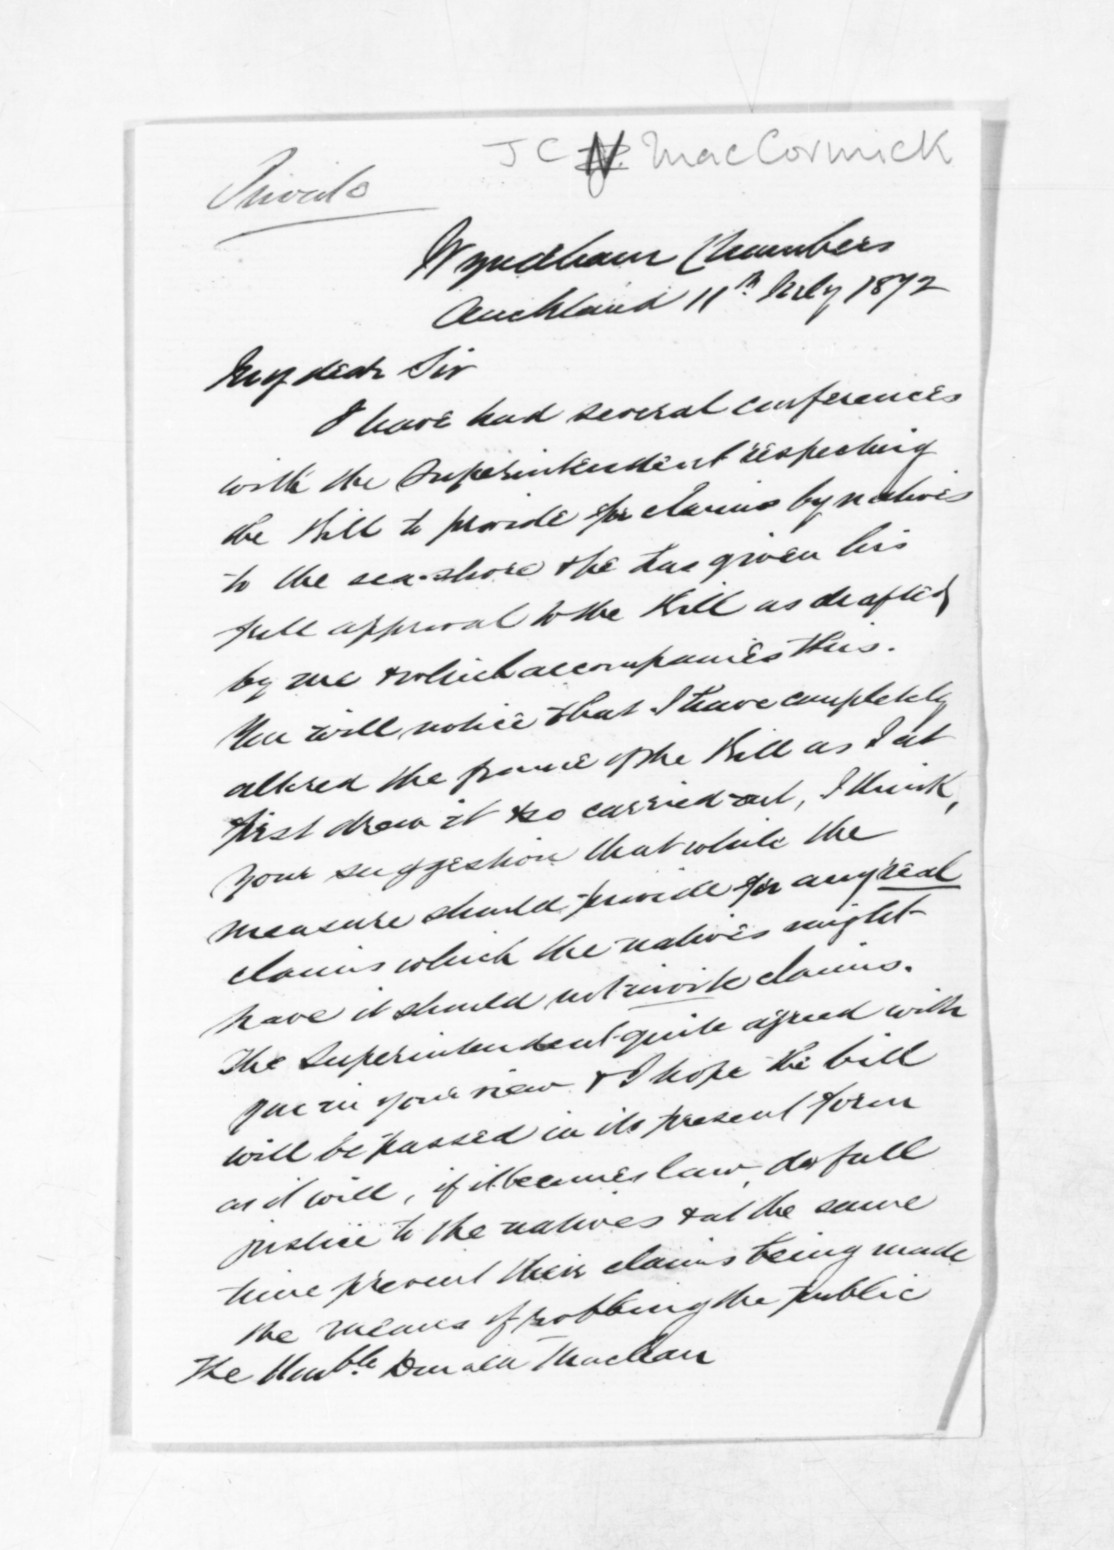 J C N. MacCormick
Private
Wyndham Chambers
Auckland 11th July 1872
My dear Sir
I have had several conferences
with the Superintendent respecting
the Bill to provide for claims by natives
to the sea-shore & he has given his
full approval to the Bill as drafted
by me & which accompanies this.
You will notice that I have completely
altered the frame of the Bill as I at
first drew it & so carried out, I think,
your suggestion that while the
measure should provide for any real
claims which the natives might
have it should not invite claims.
The Superintendent quite agreed with
me in your view & I hope the bill
will be passed in its present form
as it will, if it becomes law, do full
justice to the natives & at the same
time prevent their claims being made
the means of robbing the public
The Honble. Donald MacLean